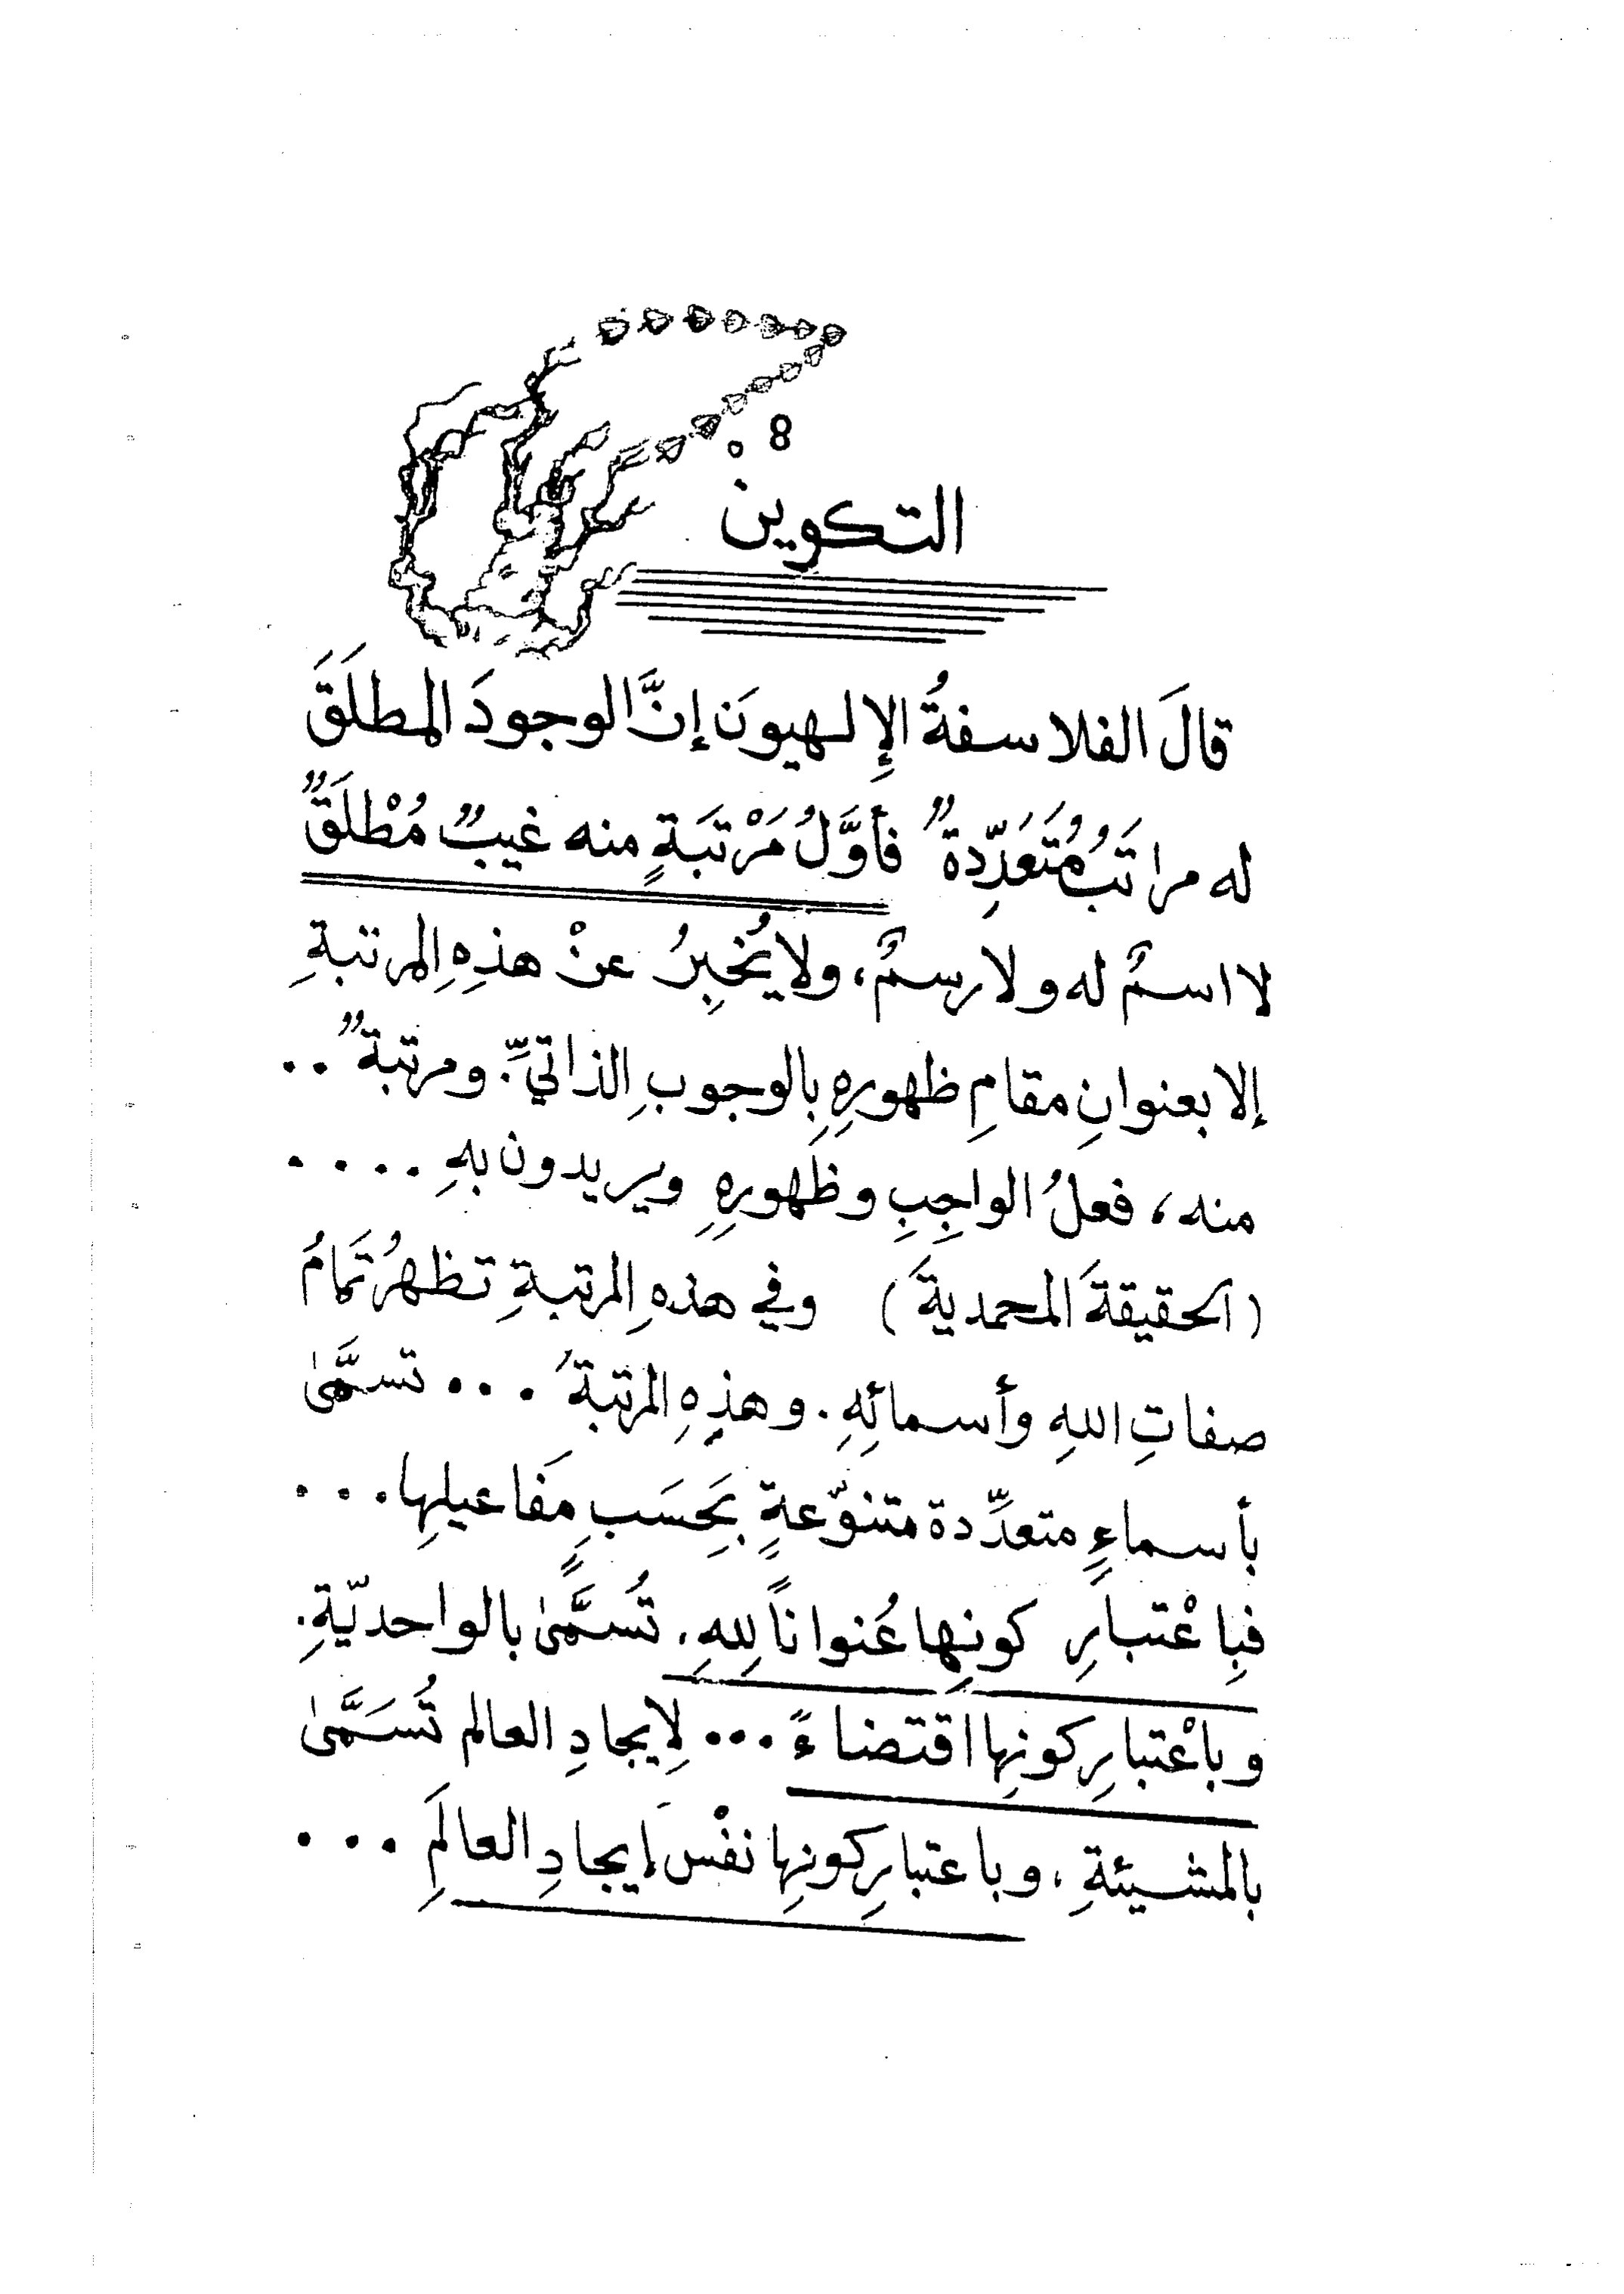 8
التكوين
قالَ الفلاسفةُ الإِلهيونَ إنَّ الوجودَ المطلَقَ
له مراتبُ مُتَعَدِّدةٌ فأوَّلُ مَرْتبَةٍ منه غيبٌ مُطْلَقٌ
لا اسمٌ له ولا رسمٌ، ولا يُخبِرُ عنْ هذِهِ المرتبةِ
إلا بعنوانِ مقامِ ظهورِهِ بِالوجوبِ الذاتيِّ: ومرتبةٌ ..
منه، فعلُ الواجِبِ وظهورِهِ ويريدون بهِ ....
(الحقيقةَ المحمديةَ) وفي هذهِ المرتبةِ تظهرُ تمَامُ
صفاتِ اللهِ وأسمائِهِ. وهذِهِ المرتبةُ ... تسمَّىٰ
بأسماءٍ متعدِّدة متنوّعةٍ بحَسَبِ مَفاعيلِها...
فبِاعْتبارِ كونِها عُنواناً لِلهِ. تُسَمَّىٰ بالواحديّةِ.
وباعْتبارِ كونِها اقتضاءً ... لِايجادِ العالم تُسَمَّىٰ
بالمشيئةِ، وباعتبارِ كونِها نفْسَ إيجادِ العالَمِ ...